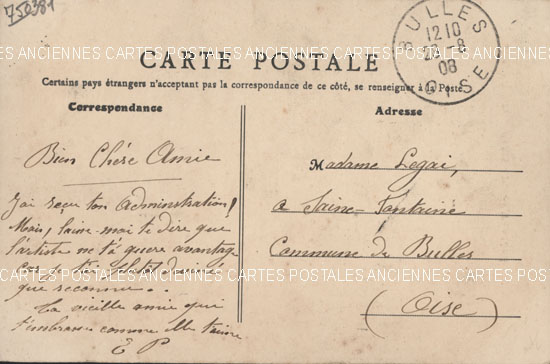 750381
BULLES
12 10
8
08
OISE
CARTES POSTALES ANCIENNES CARTES POSTALES ANCIENNES CARTES POSTALES
CARTE POSTALE
Certains pays étrangers n'acceptent pas la correspondance de ce côté, se renseigner à la Poste
Correspondance
Bien Chère Amie
J'ai reçu ton administration!
Mais, laisse moi te dire que
l'artiste ne t'a guère avantagé
que
La vieille amie qui
t'embrasse comme elle t'aime
E P
Adresse
Madame Legai,
a Saine-Fontaine
Commune de Bulles
(Oise)
CARTES POSTALES ANCIENNES CARTES POSTALES ANCIENNES CARTES POSTALES